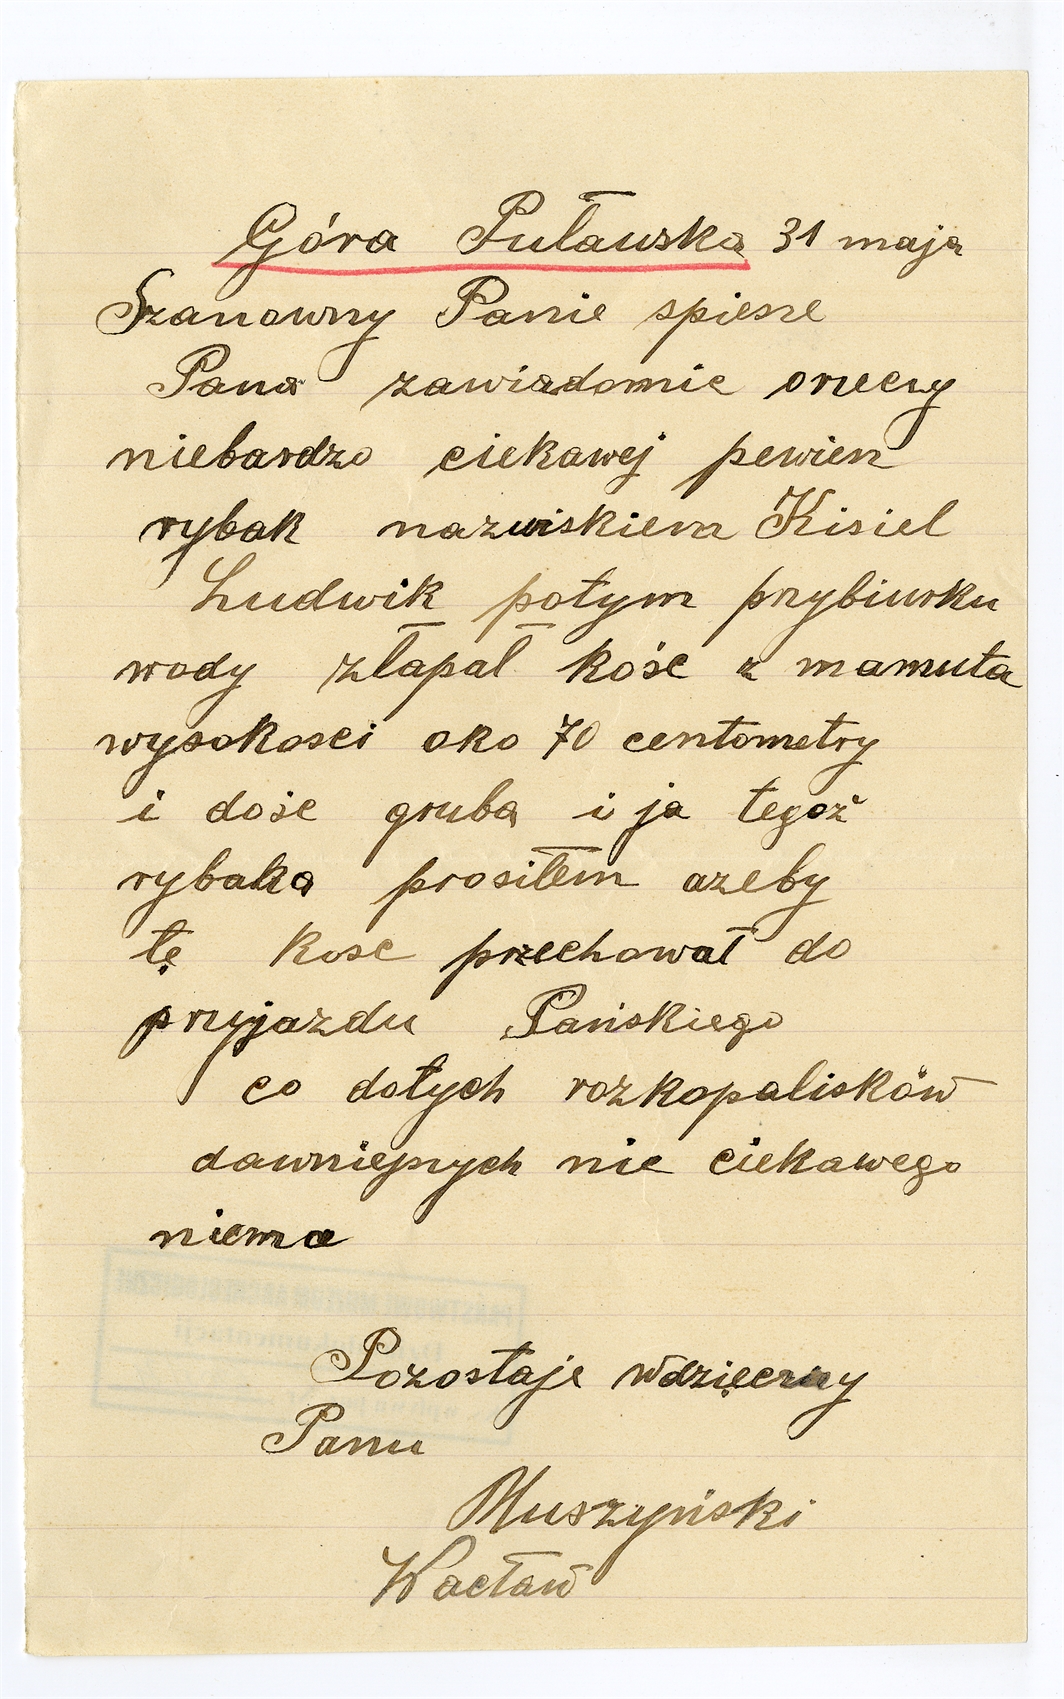 Góra Puławska 31 maja
Szanowny Panie spiesze
Pana zawiadomic orzeczy
niebardzo ciekawej pewien
rybak nazwiskiem Kisiel
Ludwik potym przybiurku
wody złapał kośc z mamuta
wysokosci oko 70 centometry
i dośc gruba i ja tegoż
rybaka prosiłem azeby
tę kosc przechował do
przyjazdu Pańskiego
co dotych rozkopalisków
dawniejszych nic ciekawego
niema
Pozostaje wdzięczny
Panu
Muszyński
Wacław